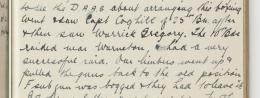 to see the D.A.A.G about arranging this boxing
went & saw Capt Coghill of 35th Bn. after
& then saw Warrick Gregory. The 10 Bde
raided near Warneton, & had a very
successful raid. Our limbers went up &
pulled the guns back to the old position
F sub gun was bogged & they had to leave it